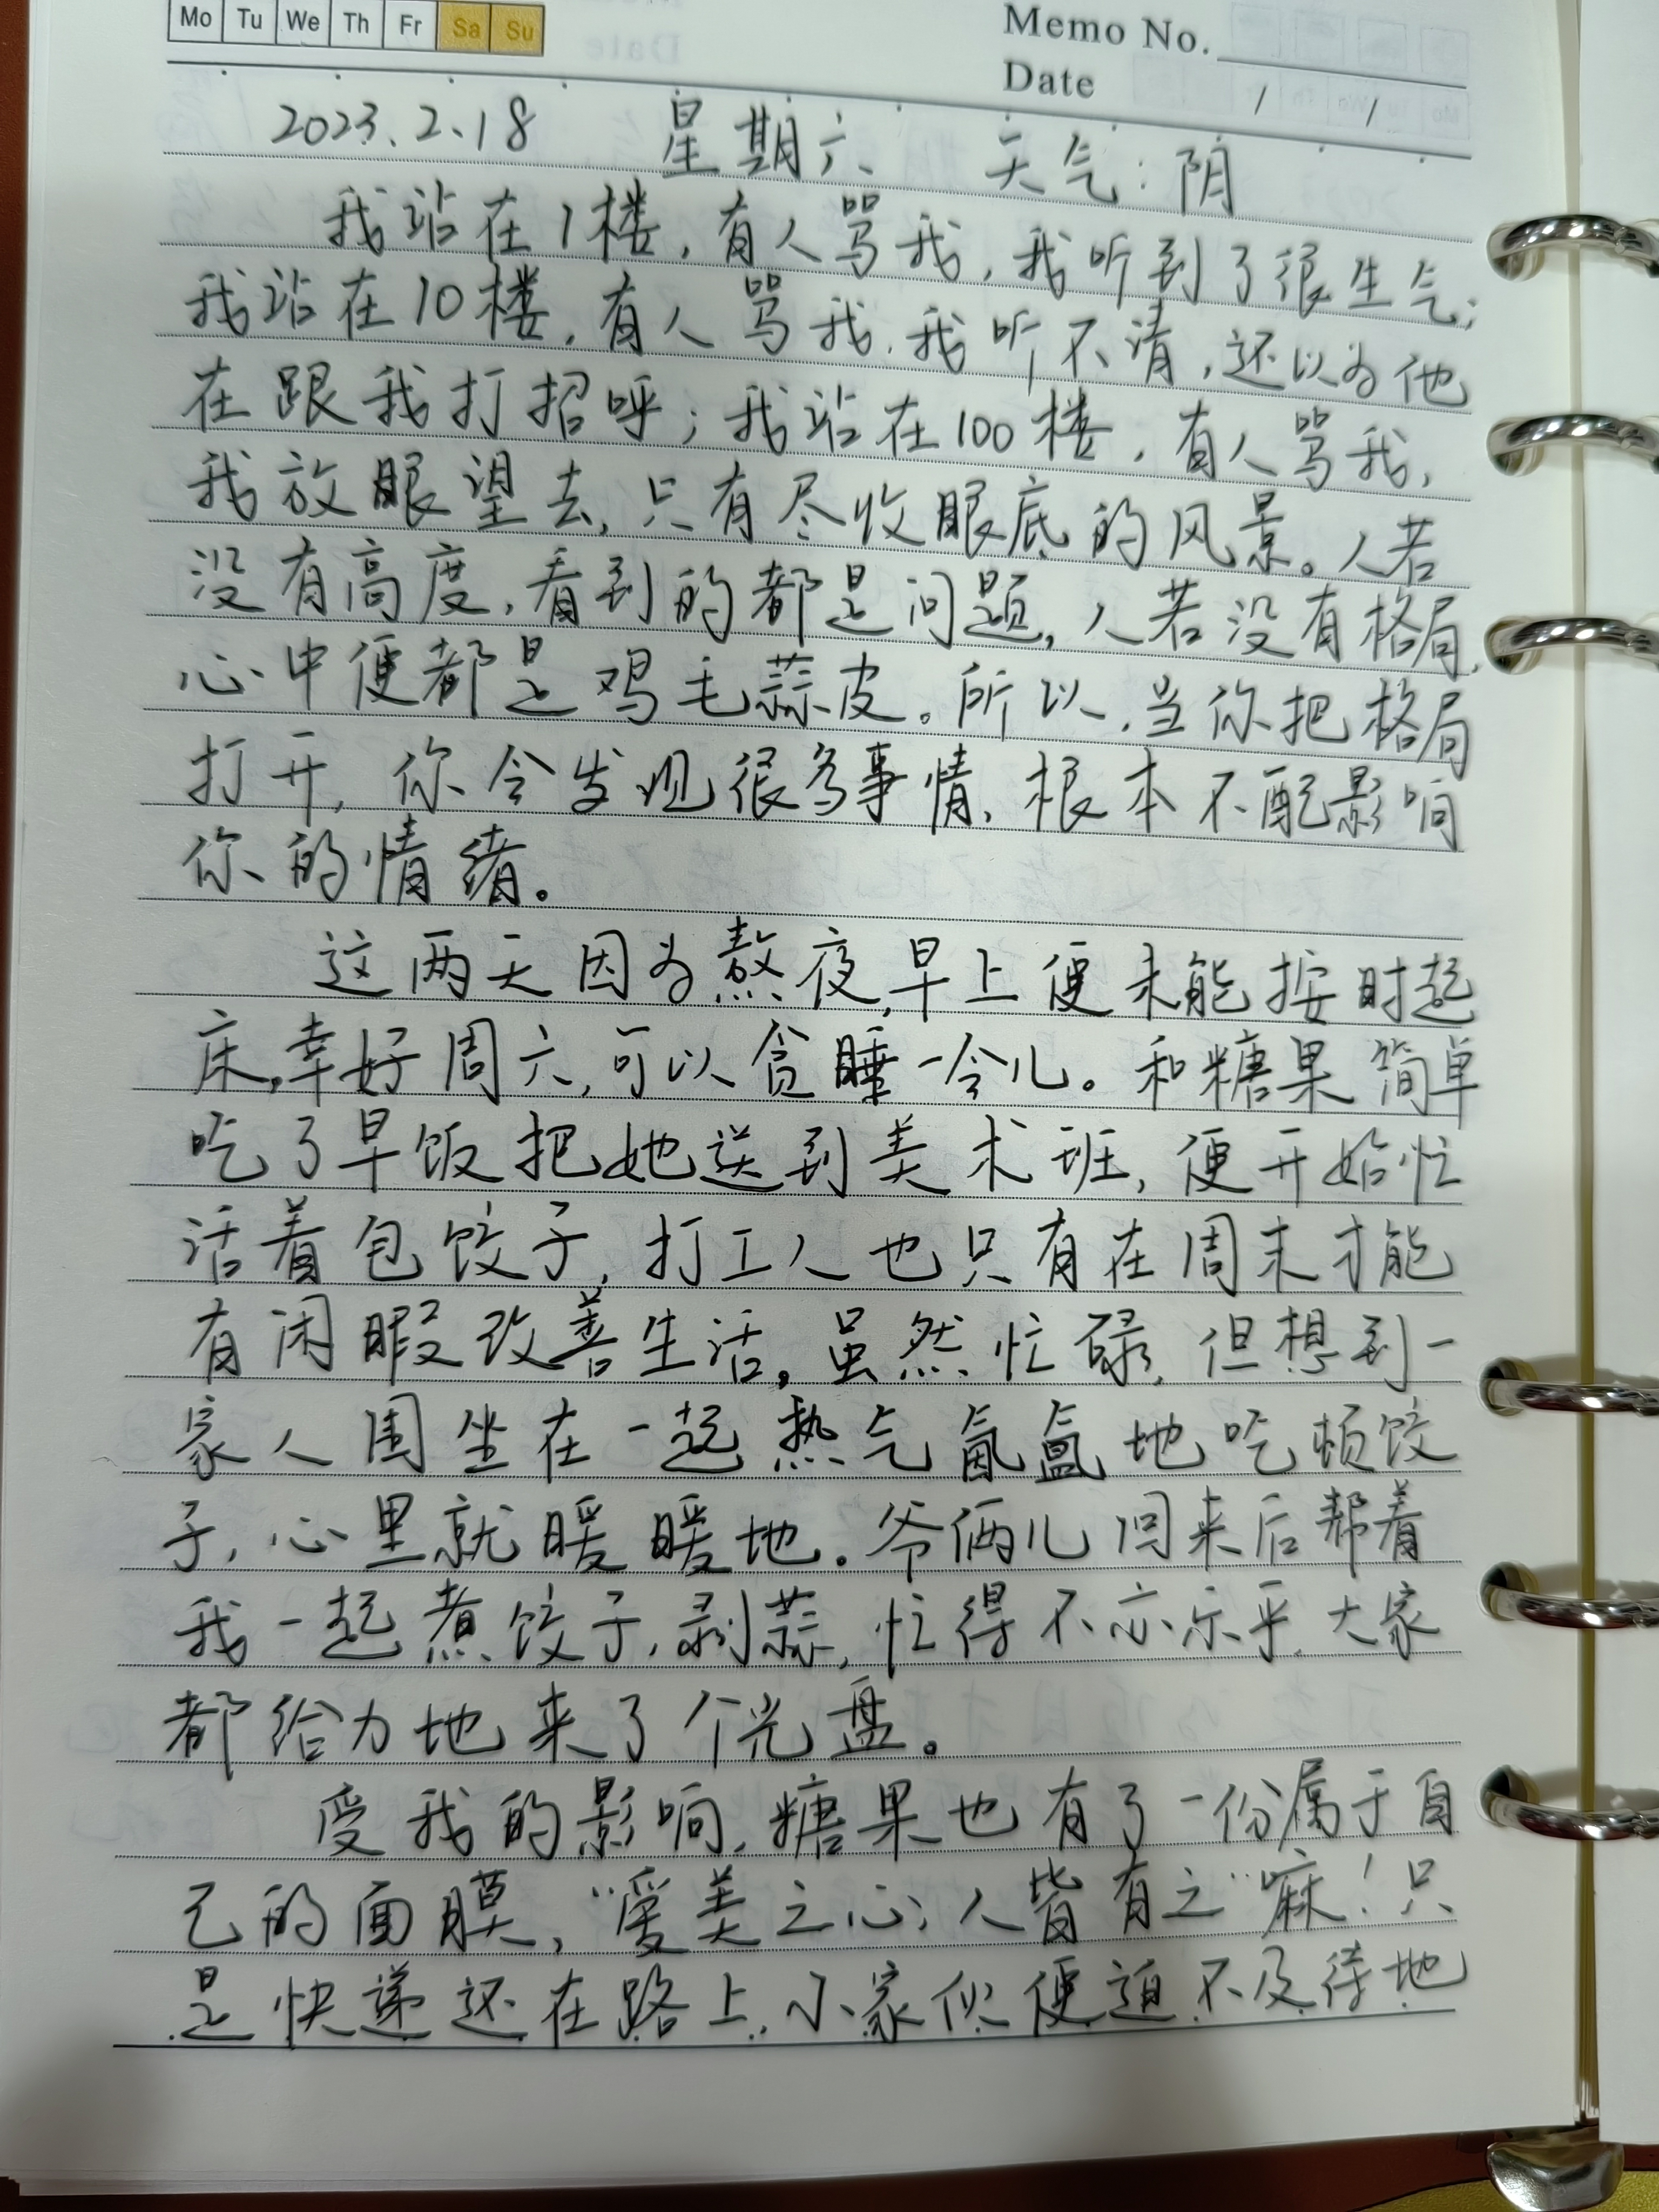 Mo Tu We Th Fr Sa Su
Memo No.
Date / /
2023.2.18 星期六 天气:阴
我站在1楼,有人骂我,我听到了很生气;
我站在10楼,有人骂我,我听不清,还以为他
在跟我打招呼;我站在100楼,有人骂我,
我放眼望去,只有尽收眼底的风景。人若
没有高度,看到的都是问题,人若没有格局,
心中便都是鸡毛蒜皮。所以,当你把格局
打开,你会发现很多事情,根本不配影响
你的情绪。
这两天因为熬夜,早上便未能按时起
床,幸好周六,可以贪睡一会儿。和糖果简单
吃了早饭把她送到美术班,便开始忙
活着包饺子,打工人也只有在周末才能
有闲暇改善生活。虽然忙碌,但想到一
家人围坐在一起热气氤氲地吃顿饺
子,心里就暖暖地。爷俩儿回来后帮着
我一起煮饺子,剥蒜,忙得不亦乐乎,大家
都给力地来了个光盘。
受我的影响,糖果也有了一份属于自
己的面膜,“爱美之心,人皆有之”嘛!只
是快递还在路上,小家伙便迫不及待地